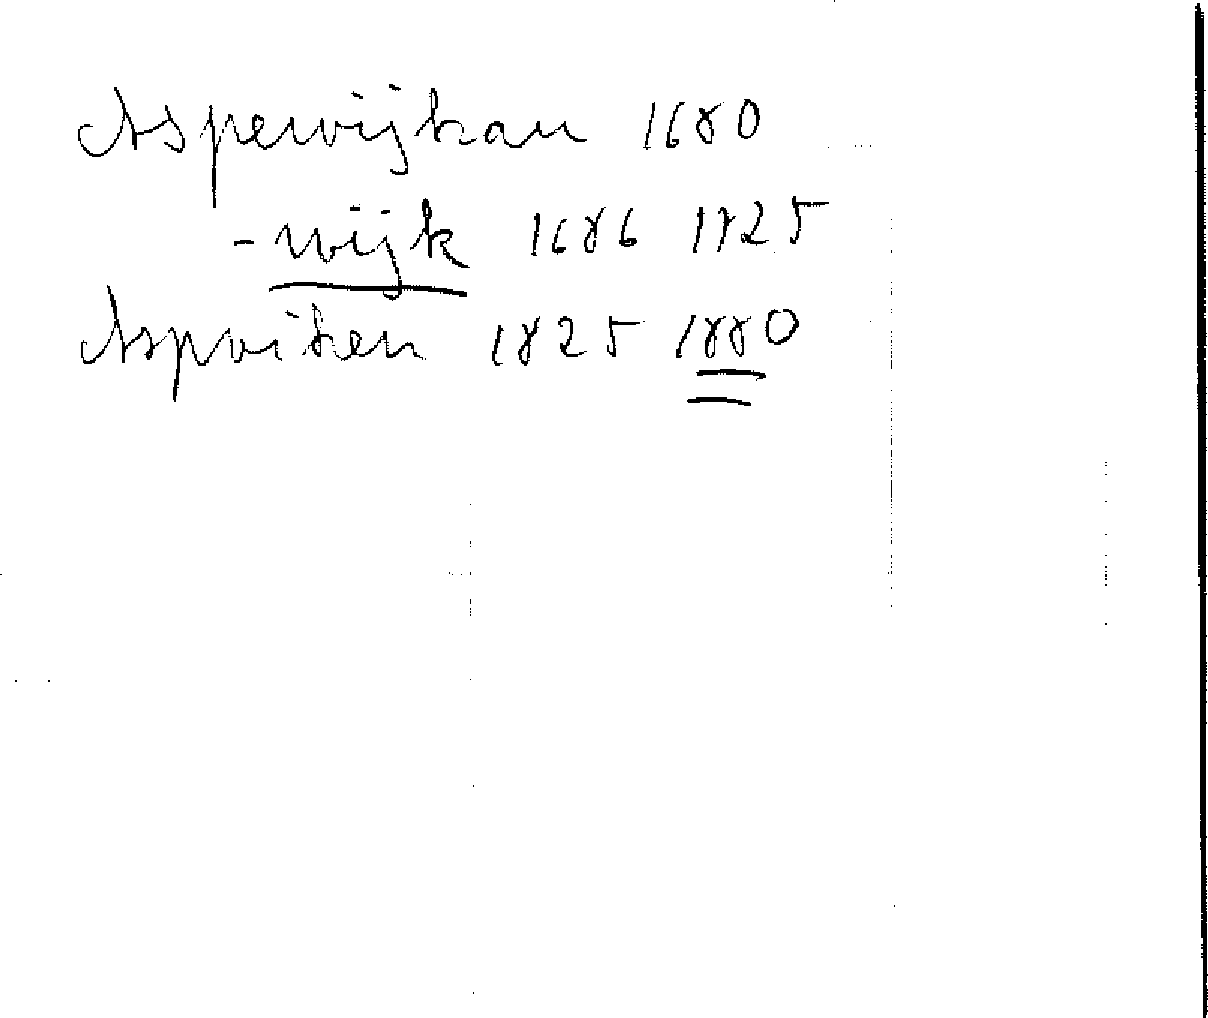 Aspewijkan 1680
-wijk 1686 1825
Aspviken 1825 1880